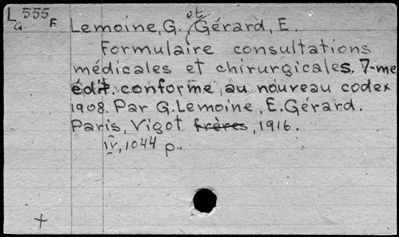 L 555 E
G.
Lemoine, G. et Gérard, E.
Formulaire consultations
médicales et chirurgicales. 7-me
édit. conforme au nouveau codex
1908. Par G. Lemoine, E. Gérard.
Paris, Vigot frères, 1916.
iv, 1044 p.